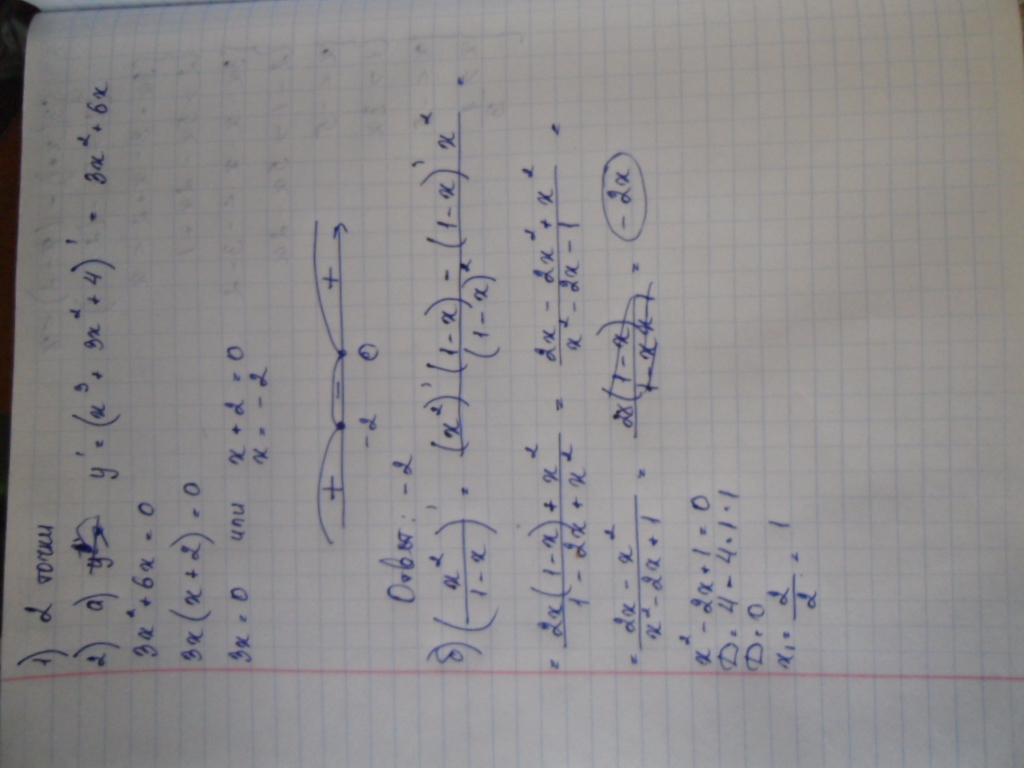 1) 2 точки
2) а) y' = (x³ + 3x² + 4)' = 3x² + 6x
3x² + 6x = 0
3x(x + 2) = 0
3x = 0 или x + 2 = 0
x = -2
+ - +
-2 0
Ответ: -2
б) (x²/(1-x))' = ((x²)'(1-x) - (1-x)'x²)/(1-x)² =
= (2x(1-x) + x²)/(1 - 2x + x²) = (2x - 2x² + x²)/(x² - 2x - 1) =
= (2x - x²)/(x² - 2x + 1) = = -2x
x² - 2x + 1 = 0
D = 4 - 4·1·1
D = 0
x₁ = 2/2 = 1